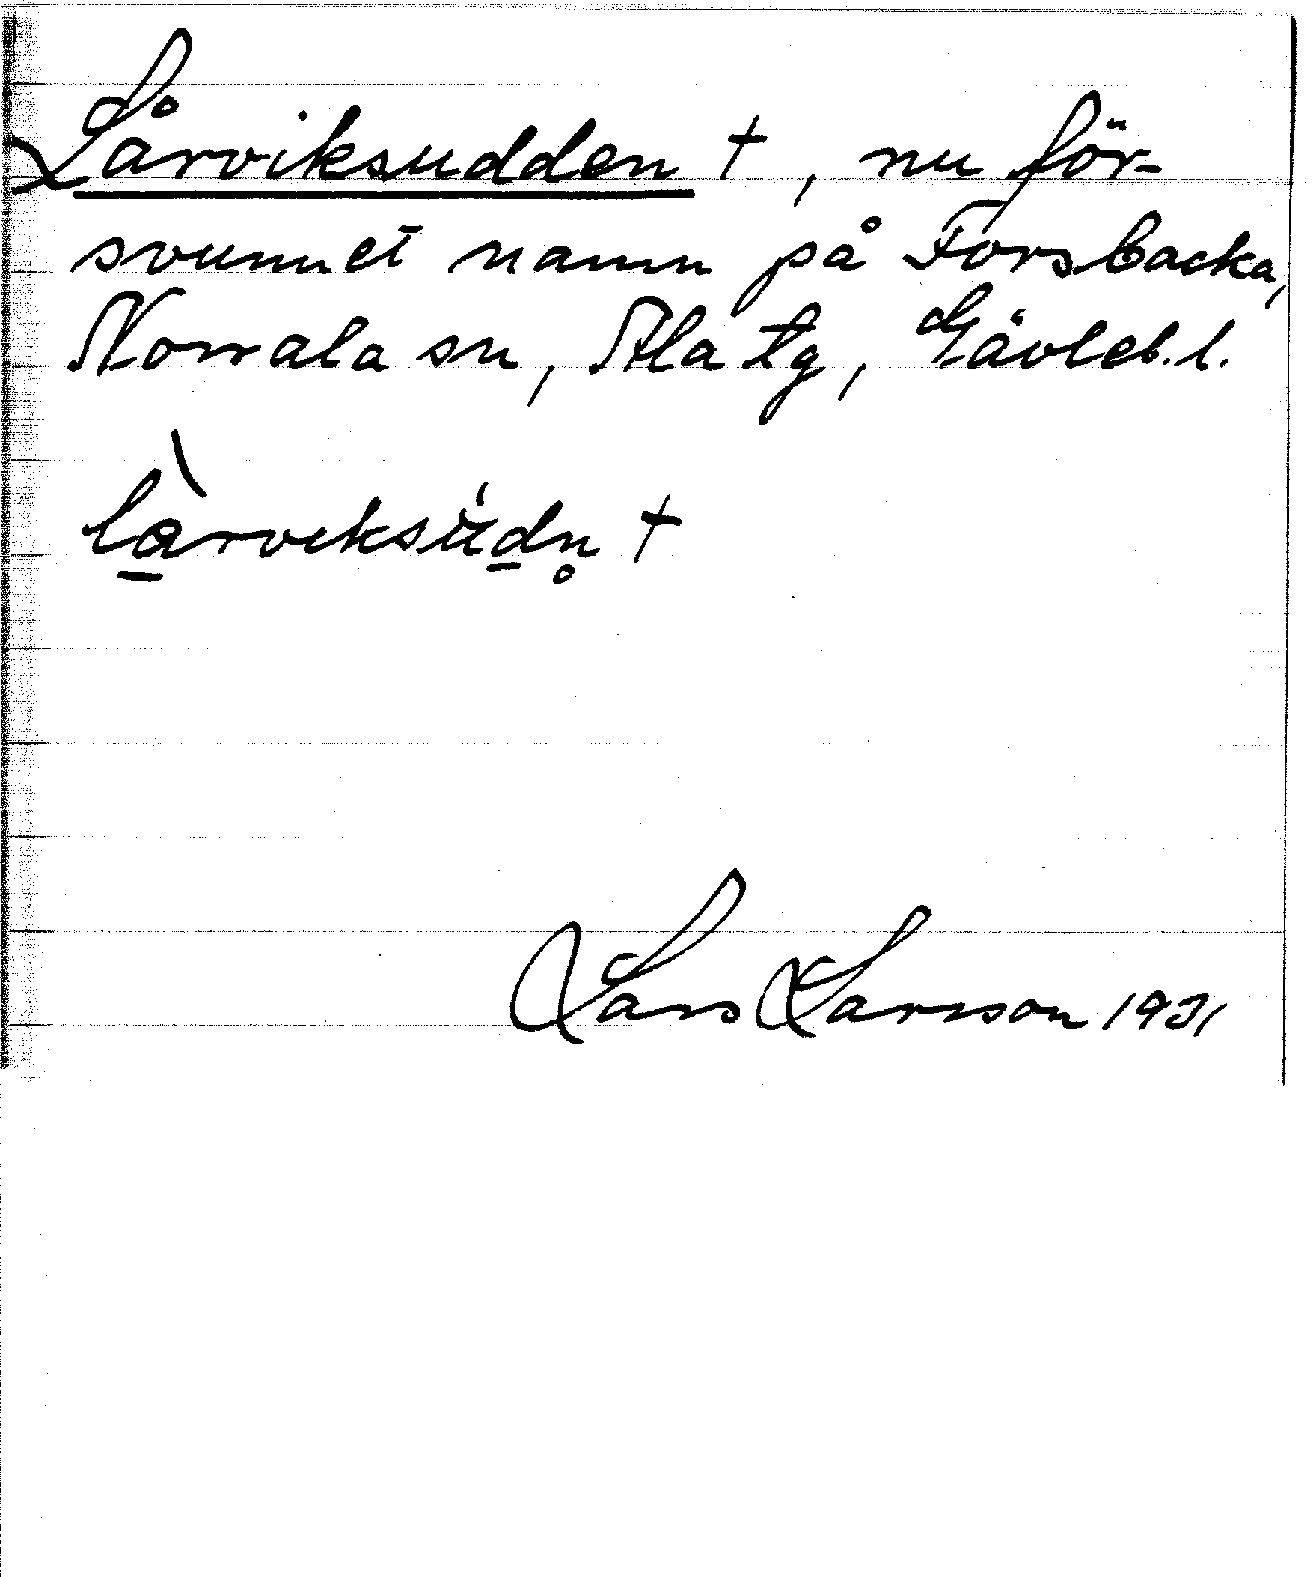 Lårviksudden †, nu för-
svunnet namn på Forsbacka,
Norrala sn, Ala tg, Gävleb. l.
làrviksúdn̥ †
Lars Larsson 1931